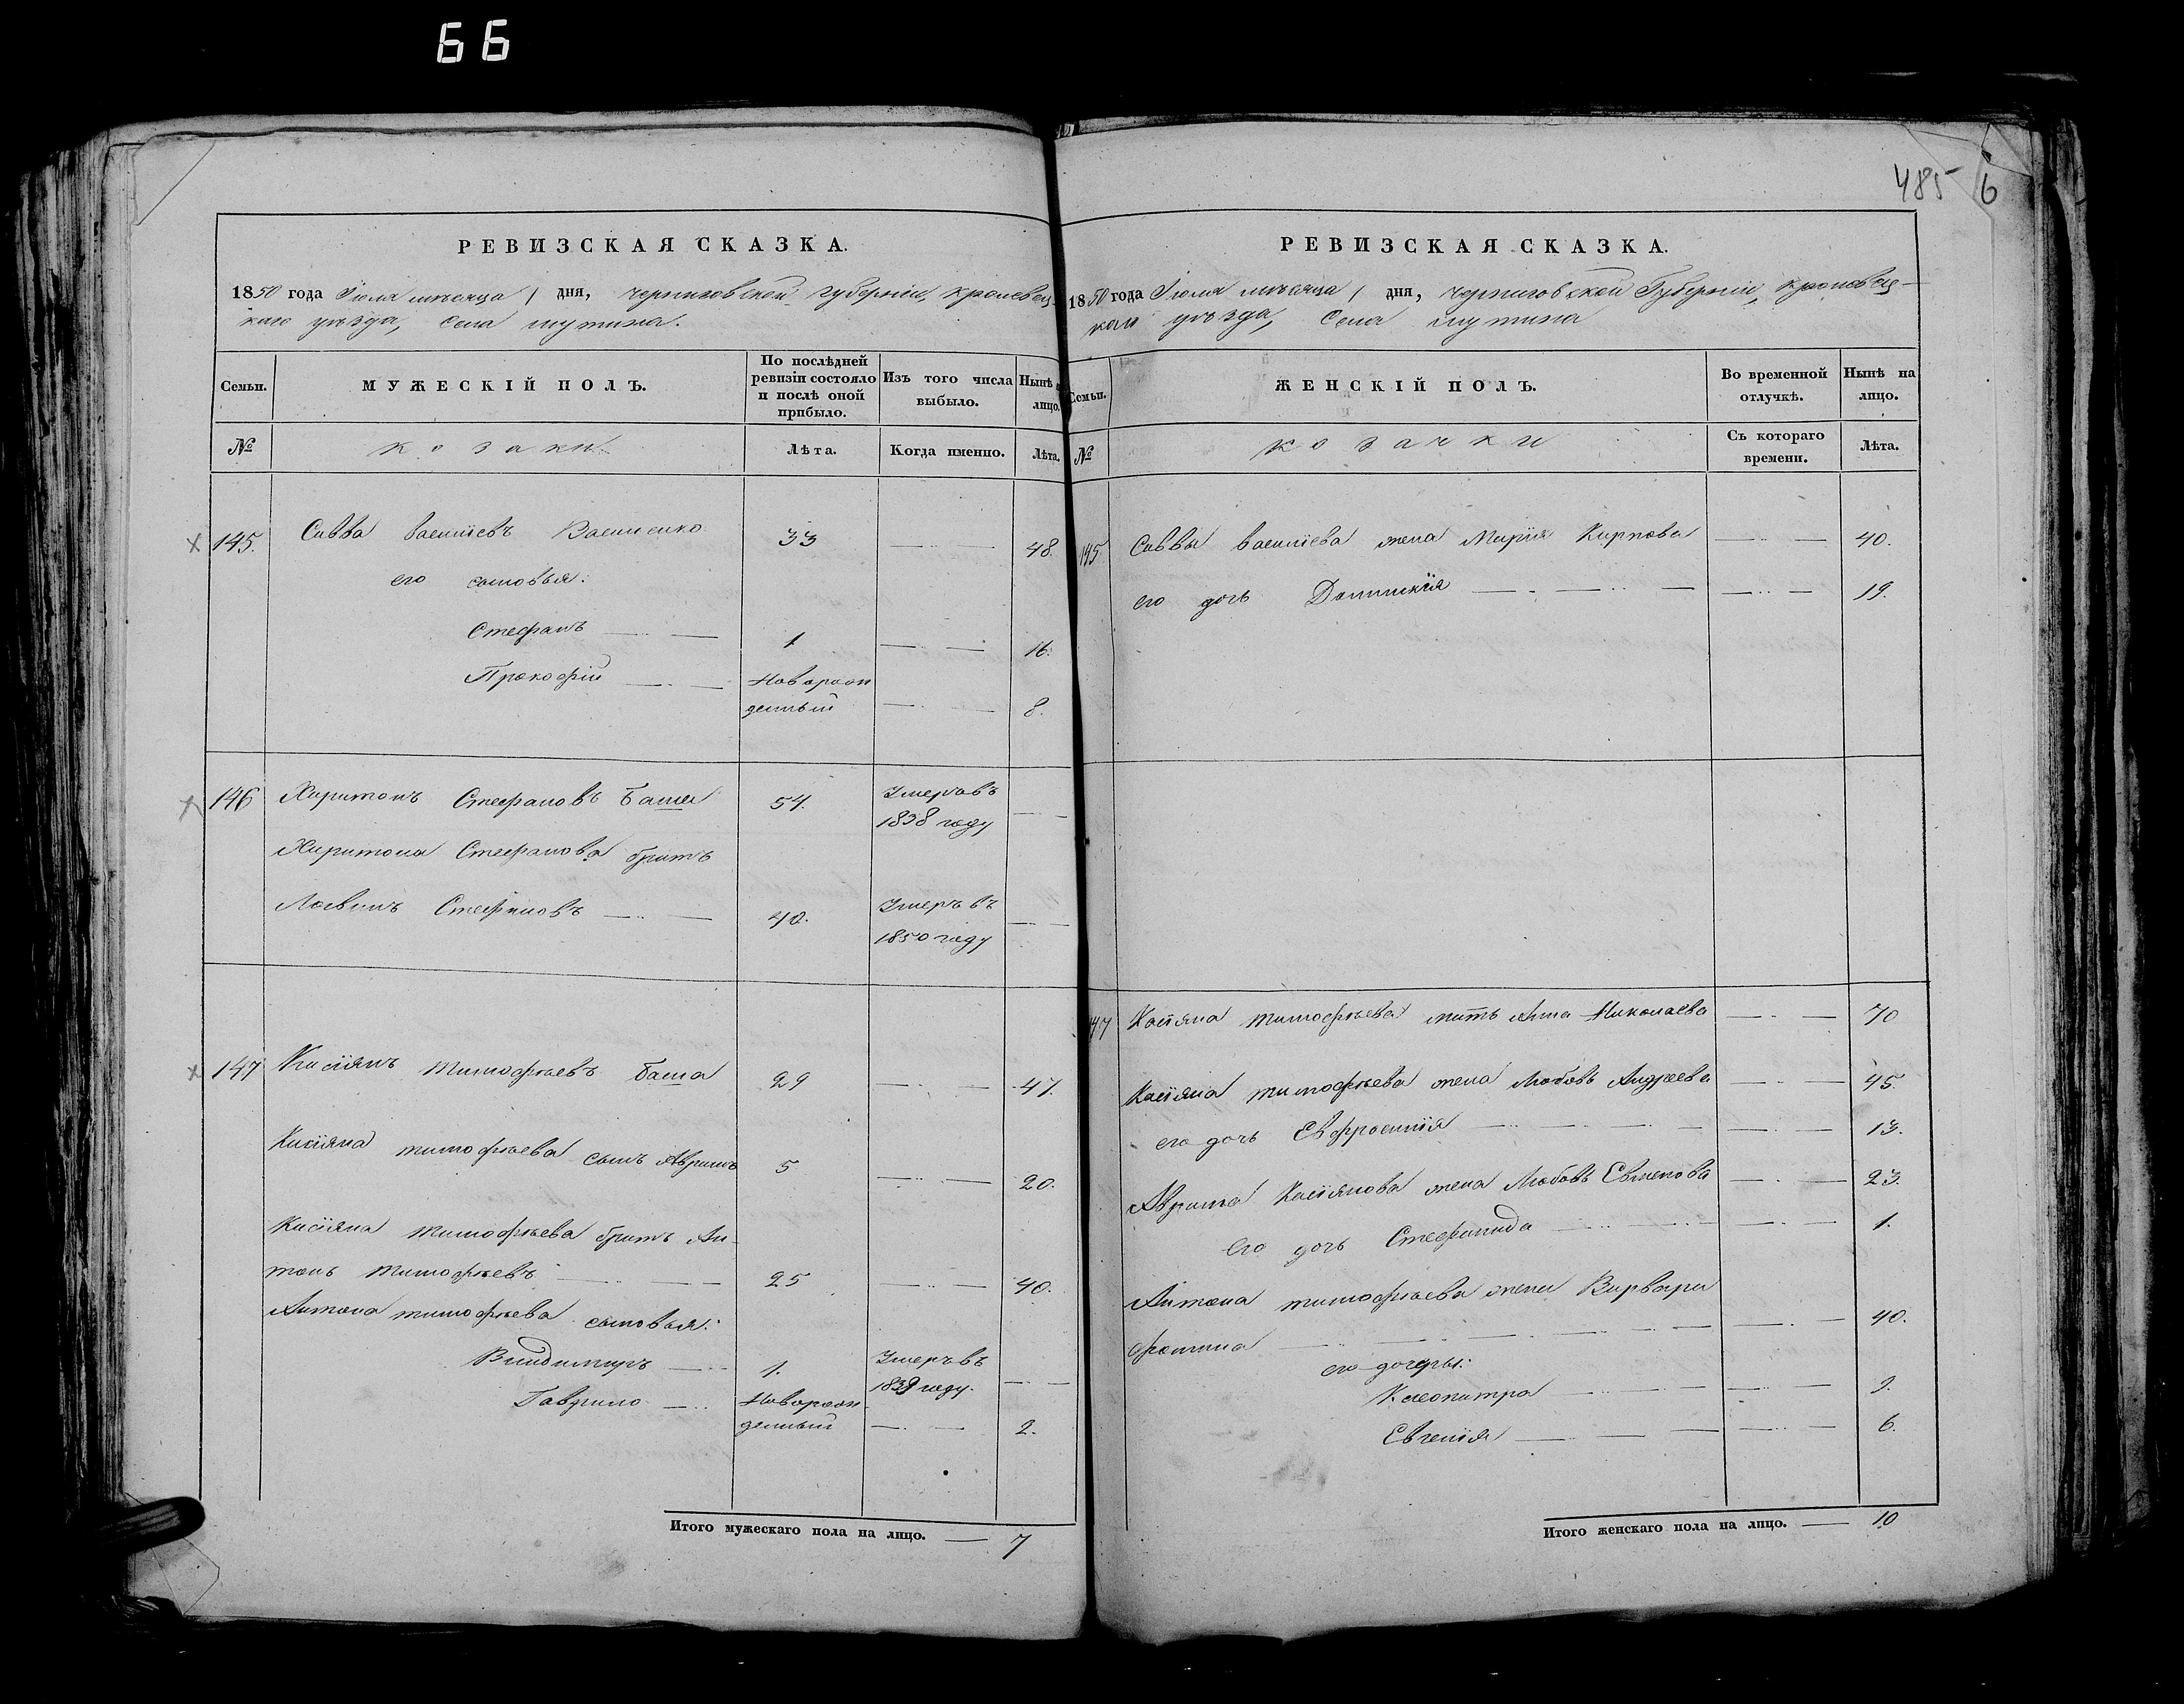 66
485 6
РЕВИЗСКАЯ СКАЗКА.
1850 года Іюля мѣсяца 1 дня, Черниговской Губерніи, Кролевец-
каго уѣзда, Села мутина.
Семьи.
МУЖЕСКІЙ ПОЛЪ.
По послѣдней ревизіи состояло и послѣ оной прибыло.
Изъ того числа выбыло.
Нынѣ на лицо.
№
козаки
Лѣта.
Когда именно.
Лѣта.
145. Савва Василіевъ Василенко 33 48.
его сыновья:
Стефанъ 1 16.
Прокофій Новорож
денный 8.
146 Харитонъ Стефановъ Баша 54. Умеръ въ
1838 году
Харитона Стефанова братъ
Логвинъ Стефановъ 40. Умеръ въ
1850 году
147 Касіянъ Тимофѣевъ Баша 29 47.
Касіяна тимофѣева сынъ Аврамъ 5 20.
Касіяна Тимофѣева братъ Ан-
тонъ Тимофѣевъ 25 40.
Антона тимофѣева сыновья:
Владимиръ 1. Умеръ въ
1839 году.
Гаврило Новорож
денный 2.
Итого мужескаго пола на лицо. 7
РЕВИЗСКАЯ СКАЗКА.
1850 года Іюля мѣсяца 1 дня, Черниговской Губерніи, Кролевец-
каго уѣзда, Села мутина
Семьи.
ЖЕНСКІЙ ПОЛЪ.
Во временной отлучкѣ.
Нынѣ на лицо.
№
козачки
Съ котораго времени.
Лѣта.
145 Саввы Василіева жена Марія Карпова 40.
его дочь Домникія 19.
147 Касіяна тимофѣева мать Анна Николаева 70
Касіяна тимофѣева жена Любовь Андреева 45.
его дочь Евфросинія 13.
Аврама Касіянова жена Любовь Евменова 23.
его дочь Стефанида 1.
Антона тимофѣева жена Варвара
Фомина 40.
его дочеры:
Клеопатра 9.
Евгенія 6.
Итого женскаго пола на лицо. 10